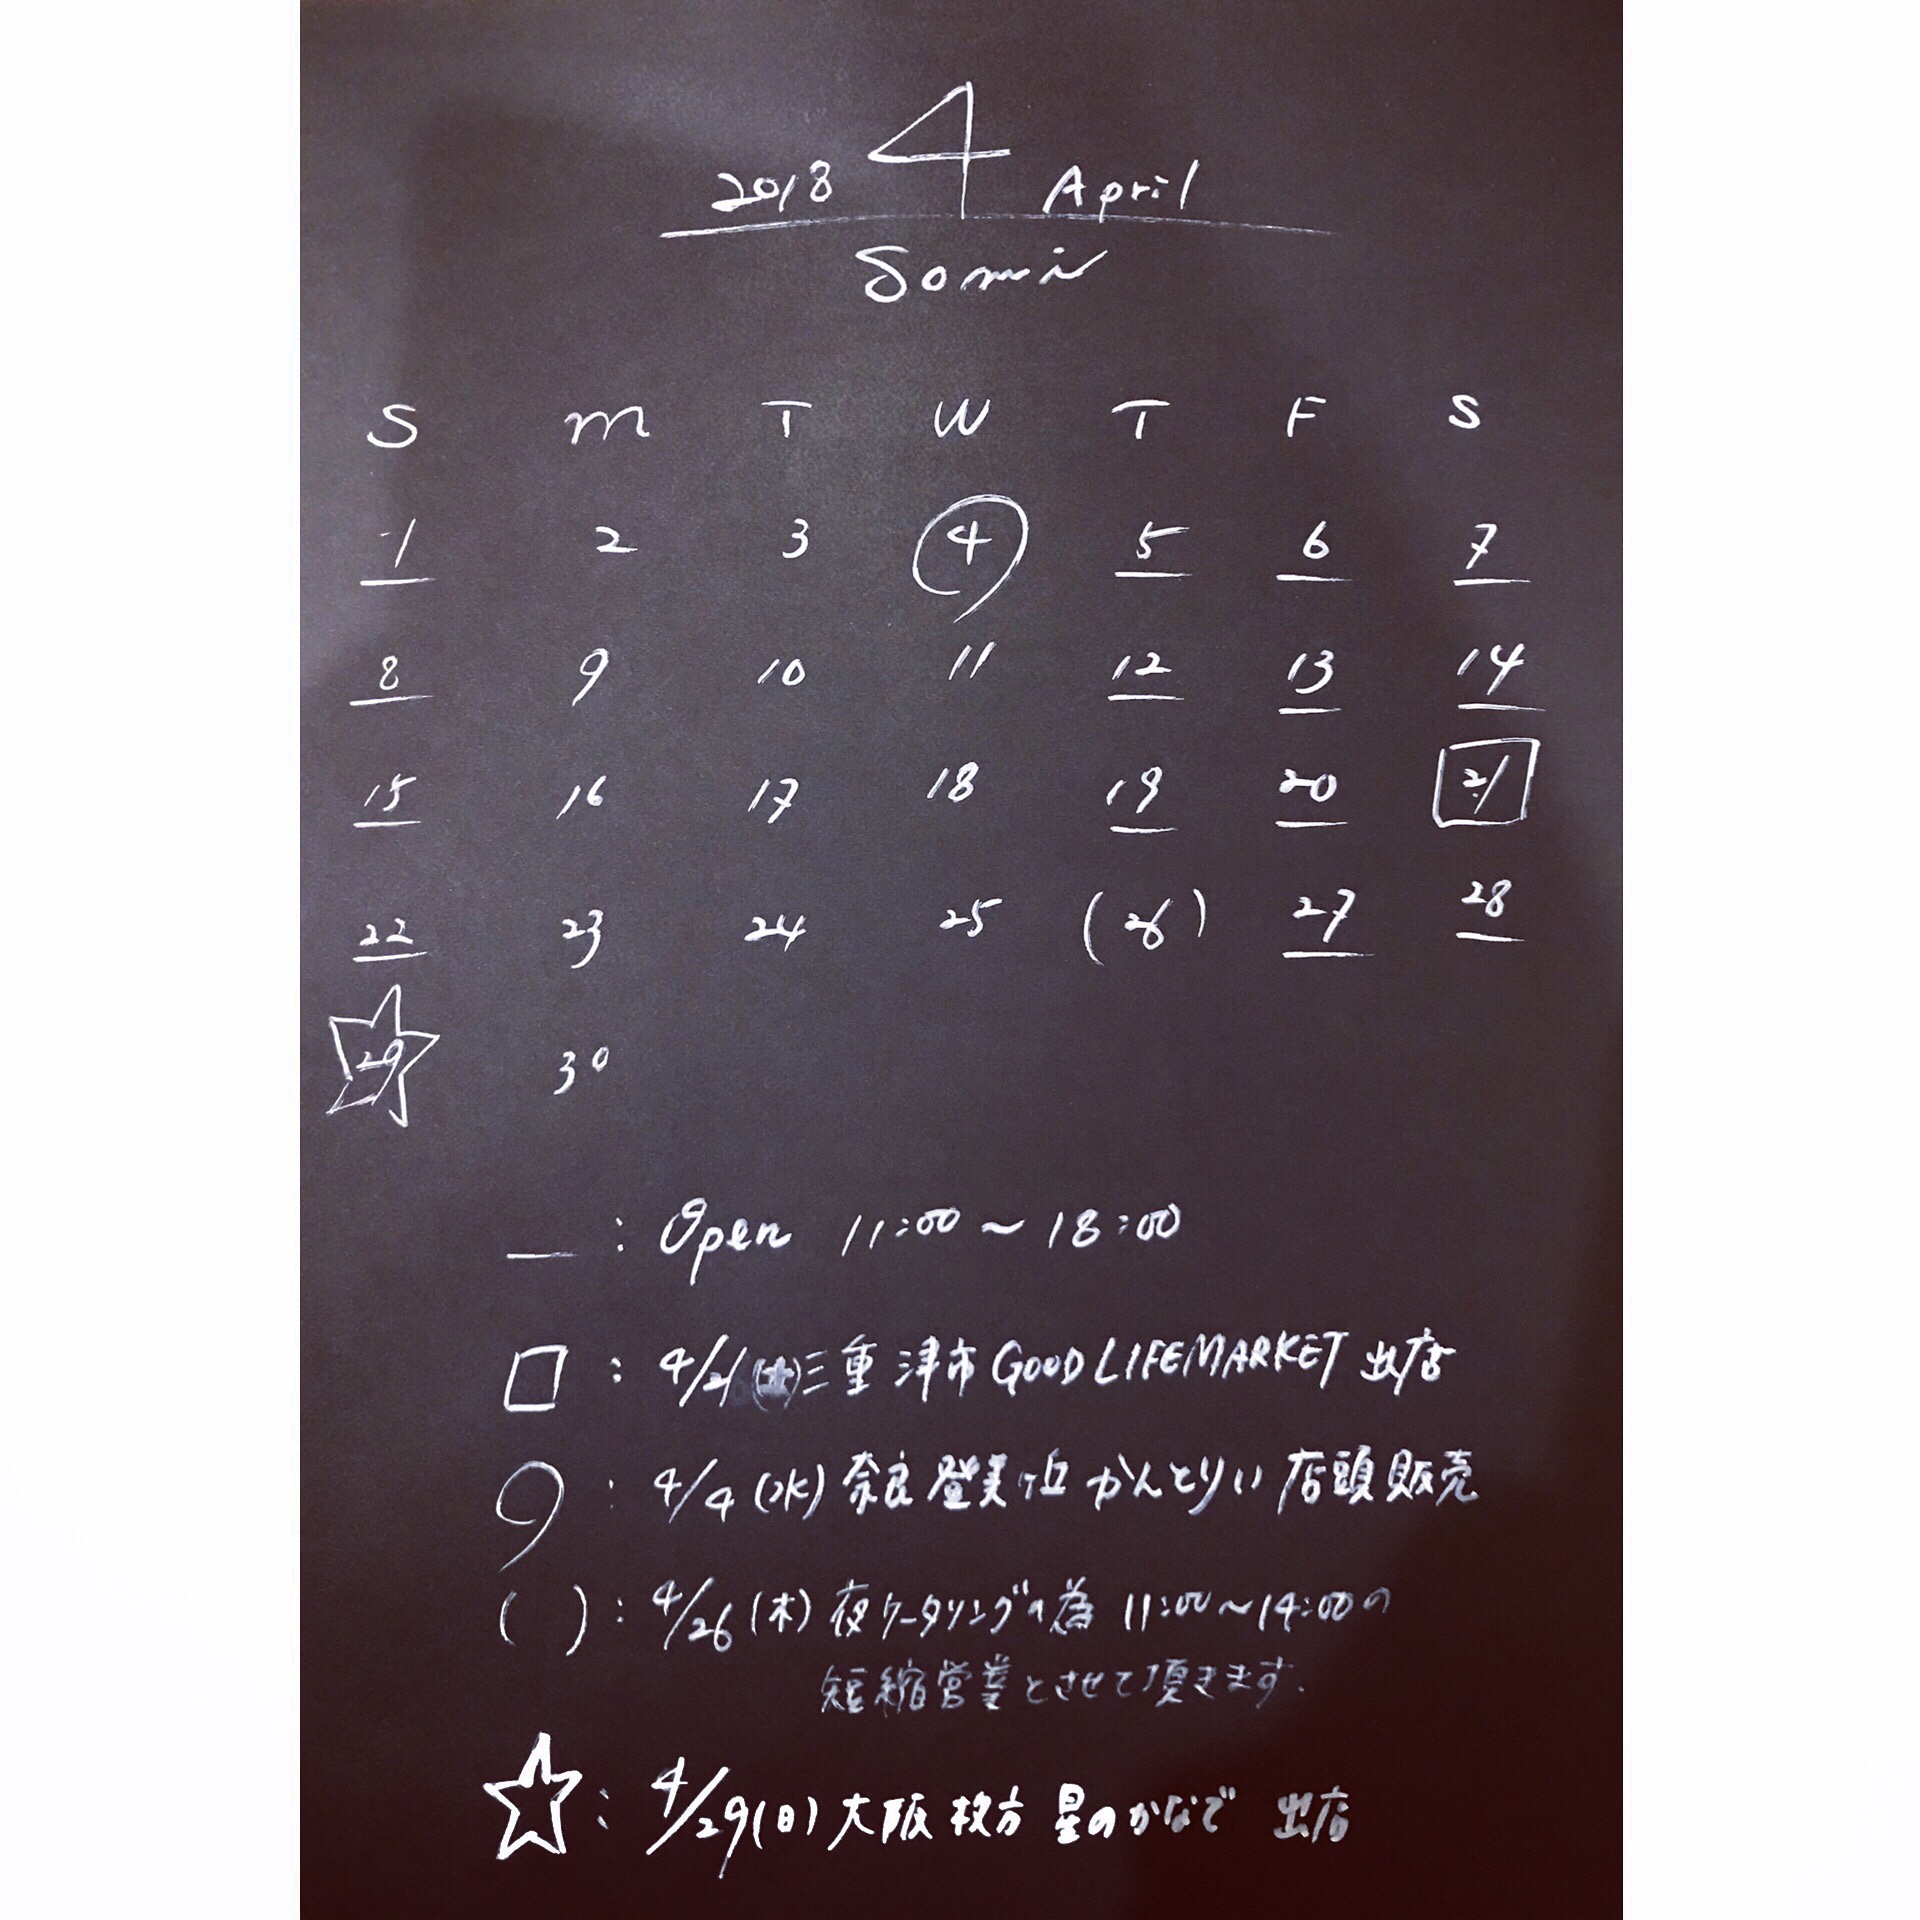 2018 4 April
Somi
S M T W T F S
1 2 3 4 5 6 7
8 9 10 11 12 13 14
15 16 17 18 19 20 21
22 23 24 25 (26) 27 28
29 30
_ : Open 11:00~18:00
□ : 4/21(土)三重 津市 GOOD LIFE MARKET 出店
: 4/4(水)奈良 登美ヶ丘 かんとりい 店頭販売
( ) : 4/26(木)夜ケータリングの為 11:00~14:00の
短縮営業とさせて頂きます.
☆ : 4/29(日)大阪 枚方 星のかなで 出店